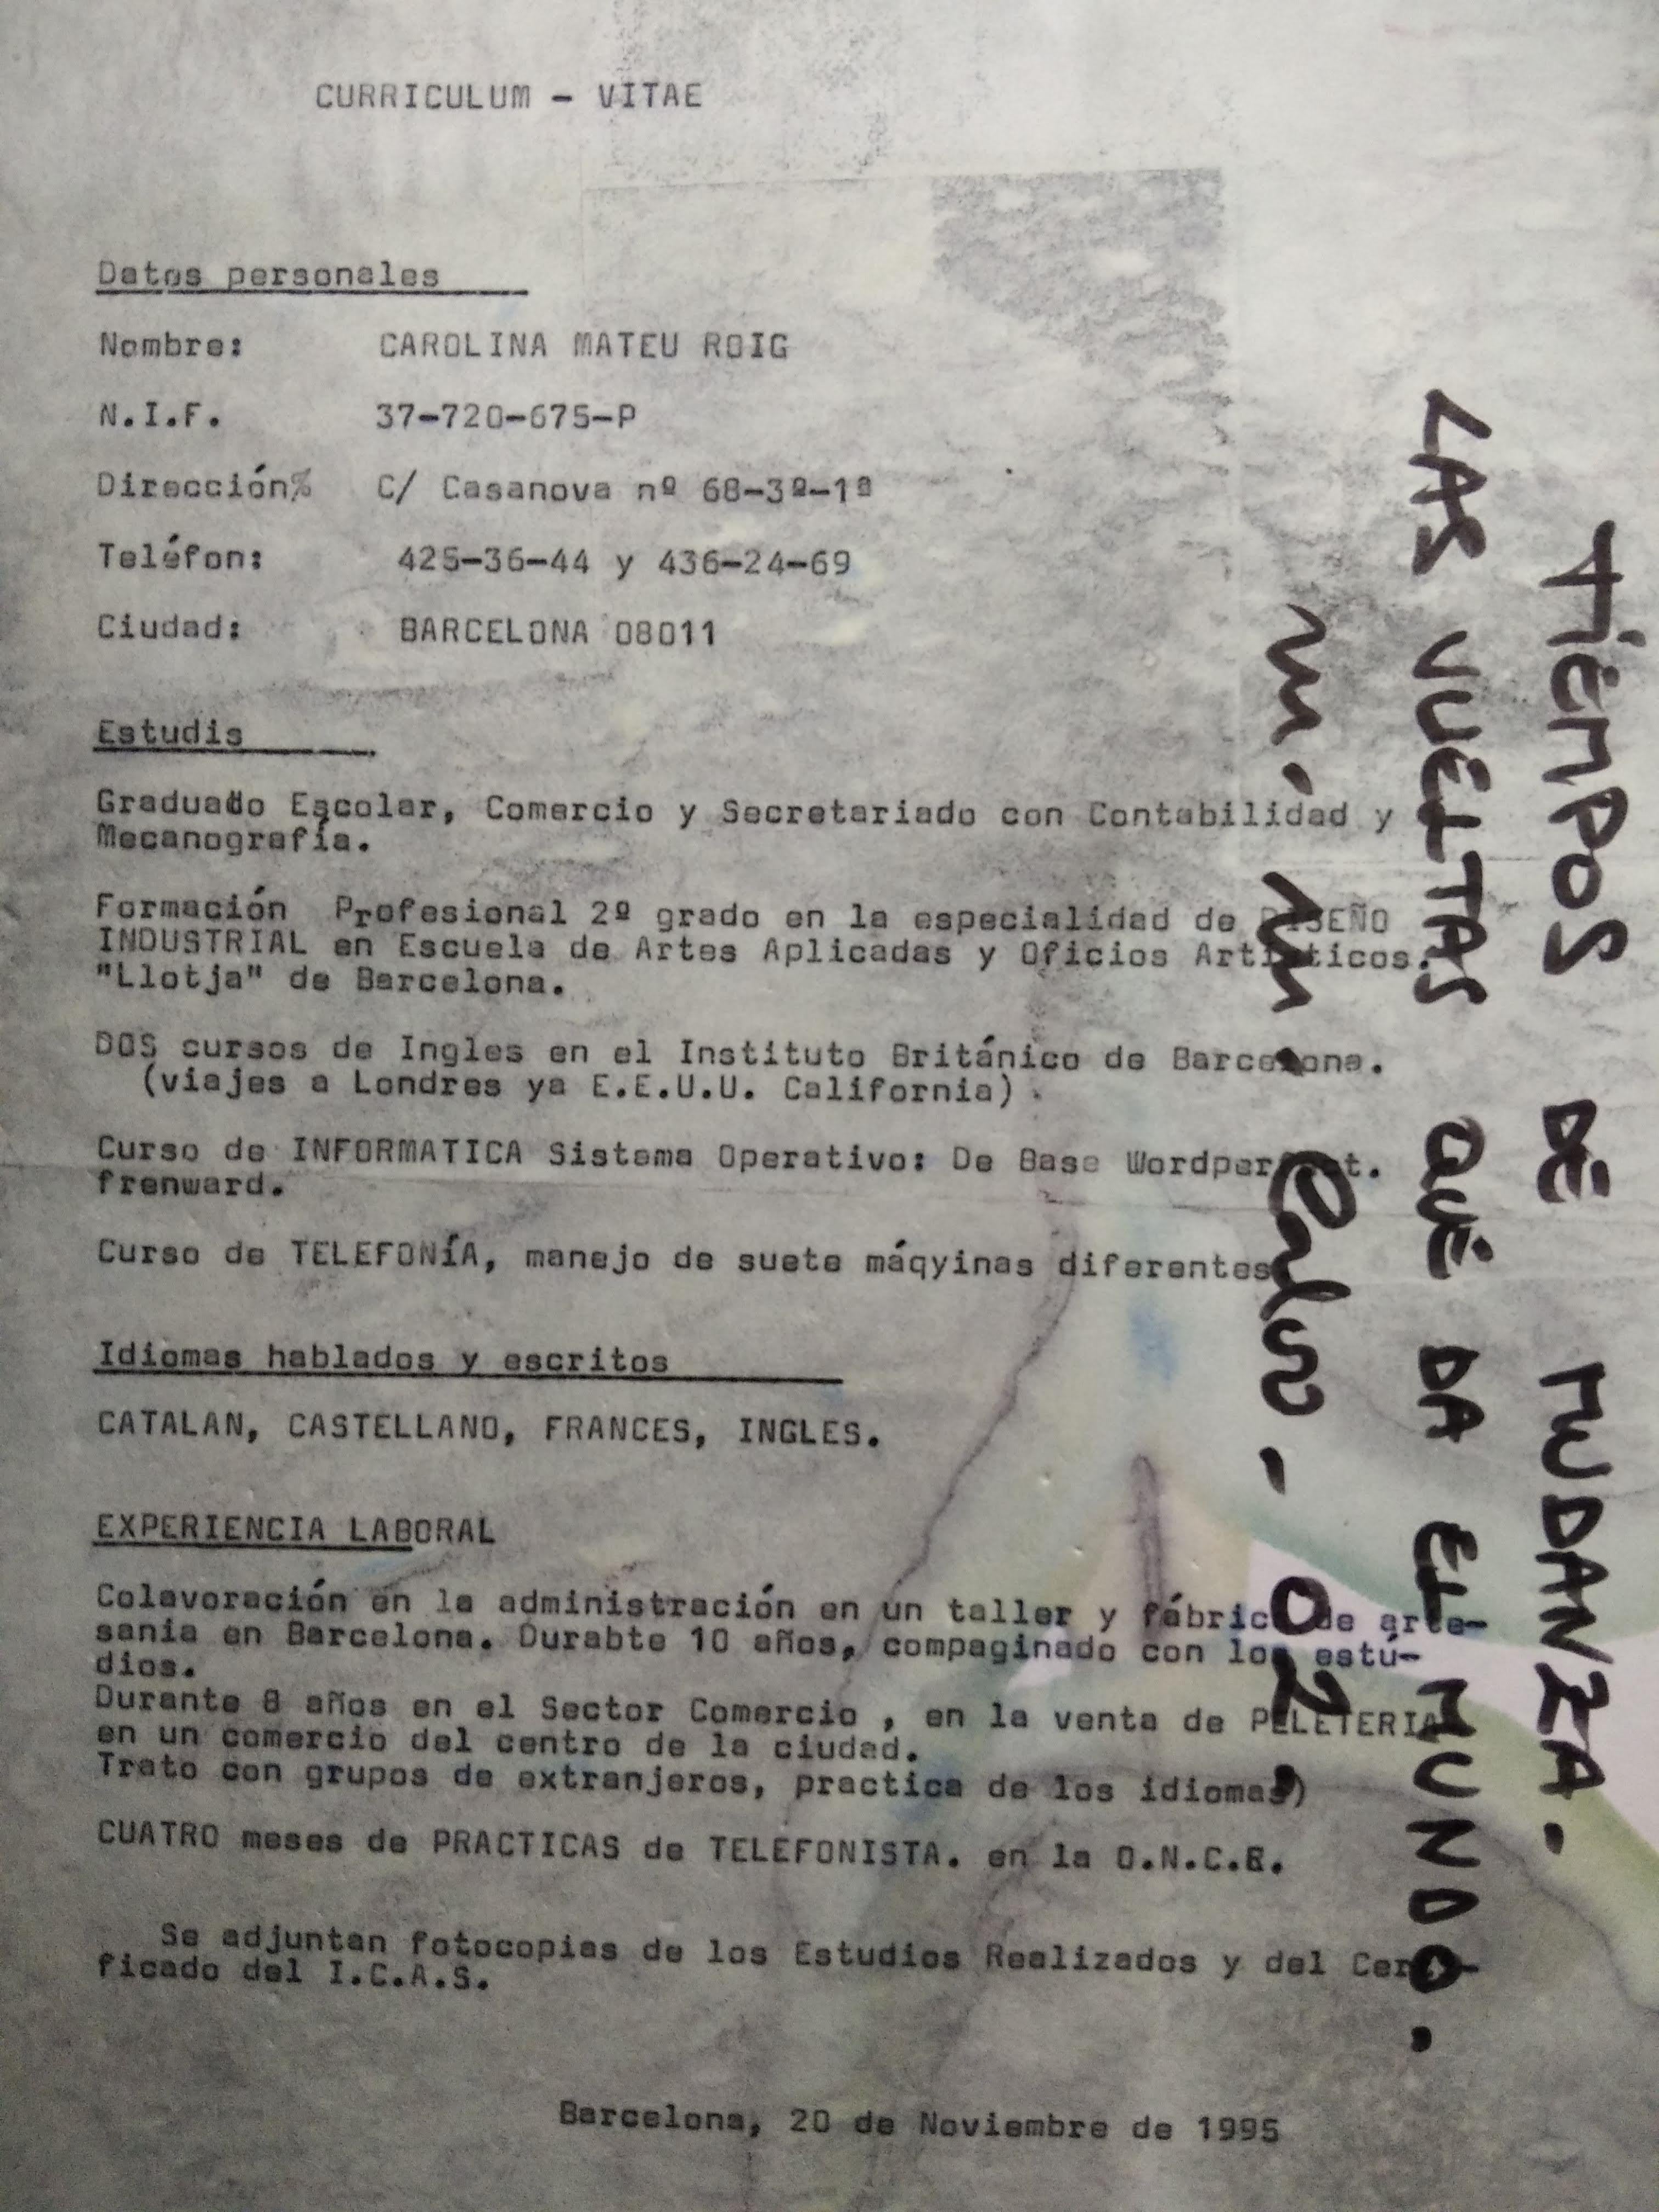 CURRICULUM - VITAE
Datos personales
Nombre: CAROLINA MATEU ROIG
N.I.F. 37-720-675-P
Dirección% C/ Casanova nº 68-3º-1ª
Teléfon: 425-36-44 y 436-24-69
Ciudad: BARCELONA 08011
Estudis
Graduado Escolar, Comercio y Secretariado con Contabilidad y
Mecanografía.
Formación Profesional 2º grado en la especialidad de DISEÑO
INDUSTRIAL en Escuela de Artes Aplicadas y Oficios Artisticos.
"Llotja" de Barcelona.
DOS cursos de Ingles en el Instituto Británico de Barcelona.
(viajes a Londres ya E.E.U.U. California).
Curso de INFORMATICA Sistema Operativo: De Base Wordperfect.
frenward.
Curso de TELEFONÍA, manejo de suete máqyinas diferentes
Idiomas hablados y escritos
CATALAN, CASTELLANO, FRANCES, INGLES.
EXPERIENCIA LABORAL
Colavoración en la administración en un taller y fábrica de arte-
sania en Barcelona. Durabte 10 años, compaginado con los estú-
dios.
Durante 8 años en el Sector Comercio , en la venta de PELETERIA
en un comercio del centro de la ciudad.
Trato con grupos de extranjeros, practica de los idiomas)
CUATRO meses de PRACTICAS de TELEFONISTA. en la O.N.C.E.
Se adjuntan fotocopias de los Estudios Realizados y del Certi-
ficado del I.C.A.S.
Barcelona, 20 de Noviembre de 1995
TIEMPOS DE MUDANZA.
LAS VUELTAS QUE DA EL MUNDO.
02,